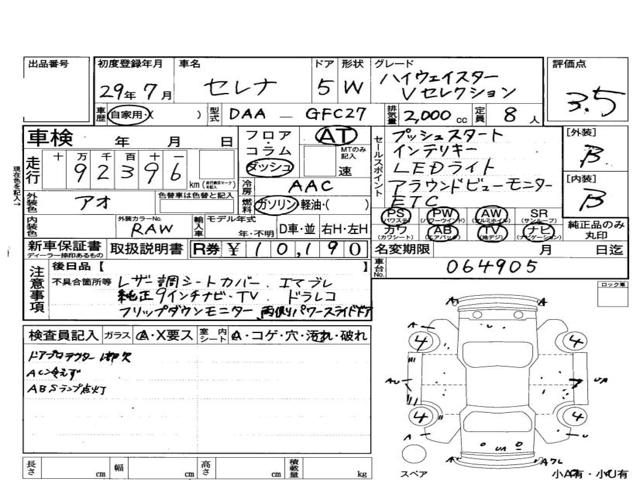 出品番号
初度登録年月 29年 7月
車名 セレナ
ドア 5
形状 W
グレード ハイウェイスター Vセレクション
評価点 3.5
車歴 自家用・( )
型式 DAA - GFC27
排気量 2,000 cc
定員 8 人
車検 年 月 日
フロア・コラム ダッシュ
AT MTのみ記入 速
走行 十万千百十一 92396 km
現在色を記入↑
外装色 アオ 色替車は色替と記入
冷房 AAC
燃料 ガソリン 軽油・( )
内装色
外装カラーNo. RAW
輸入車 モデル年式 年・不明 D車・並 右H・左H
セールスポイント
プッシュスタート
インテリキー
LEDライト
アラウンドビューモニター
ETC
[外装] B
[内装] B
PS (パワステ) PW (パワーウインド) AW (アルミホイル) SR (サンルーフ)
カワ (カワシート) AB (エアバック) TV (地デジ) ナビ (ナビゲーション)
純正品のみ丸印
新車保証書 ディーラー捺印あるもの
取扱説明書
R券 ¥10,190
名変期限 月 日迄
車台No. 064905
注意事項
後日品 [
不具合箇所等 レザー調シートカバー、エマブレ
純正9インチナビ・TV、ドラレコ
フリップダウンモニター、両側パワースライドドア
ロック車
検査員記入 ガラス A・X要ス 室内シート A・コゲ・穴・汚れ・破れ
ドアプロテクター 1部欠
AC冷えず
ABSランプ点灯
A
A
4
4
A
A
AU
UA
A
4
4
A
A
UA
A
スペア
小A有・小U有
長さ cm
幅 cm
高さ cm
積載量 kg